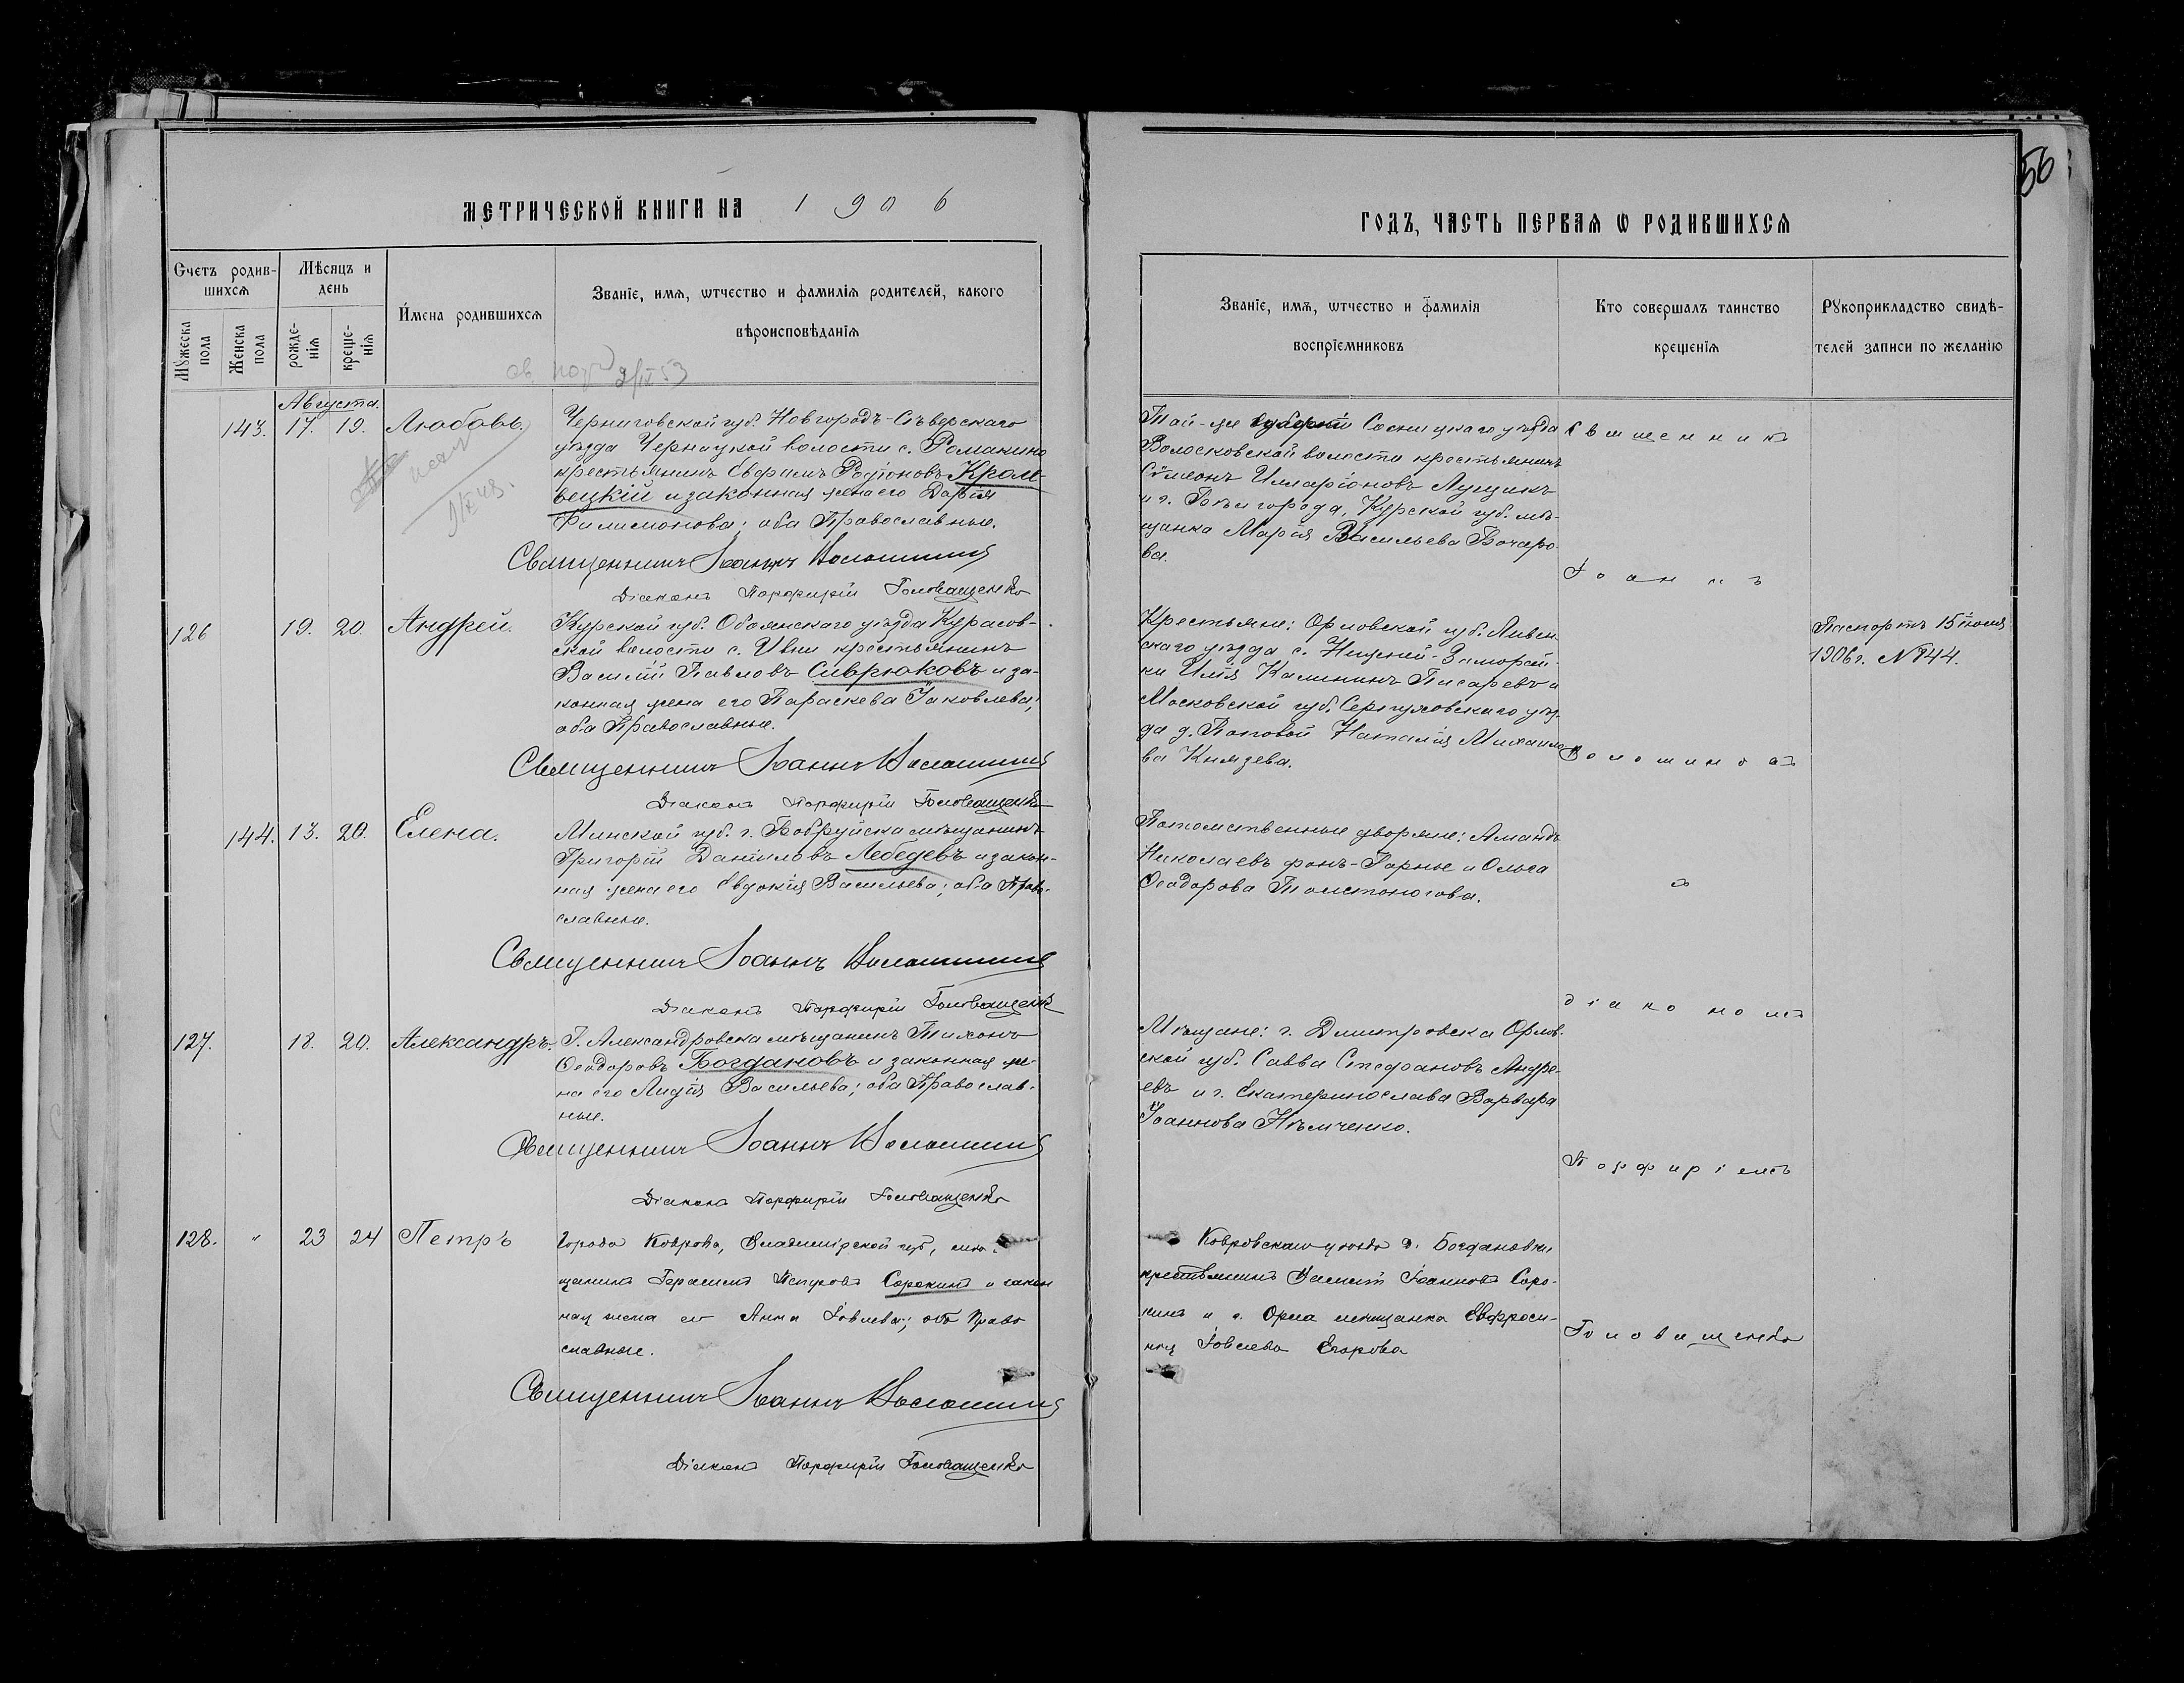 56
МЕТРИЧЕСКОЙ КНИГИ НА 1906
ГОДЪ, ЧАСТЬ ПЕРВАЯ Ѡ РОДИВШИХСЯ
Счетъ родив-
шихся
Мѣсяцъ и
день
Мужеска
пола
Женска
пола
рожде-
нія
креще-
нія
Имена родившихся
Званіе, имя, ѡтчество и фамилія родителей, какого
вѣроисповѣданія
Званіе, имя, ѡтчество и фамилія
воспріемниковъ
Кто совершалъ таинство
крещенія
Рукоприкладство свидѣ-
телей записи по желанію
Августа.
143. 17. 19. Любовь.
Черниговской губ. Новгородъ-Сѣверскаго
уѣзда Чернацкой волости с. Ромакино
крестьянинъ Евфимъ Родіоновъ Кроле-
вецкій и законная жена его Дарія
Филимонова; оба Православные.
Священникъ Іоаннъ Волошиновъ
Діаконъ Порфирій Головащенко
Той-же губерніи Сосницкаго уѣзда
Волосковской волости крестьянинъ
Сѵмеонъ Илларіоновъ Лущикъ
и г. Бѣлгорода, Курской губ. мѣ-
щанка Марія Васильева Бочаро-
ва.
Священникъ
Іоаннъ
126 19. 20. Андрей.
Курской губ. Обоянскаго уѣзда Курасов-
ской волости с. Ивни крестьянинъ
Василій Павловъ Сиврюковъ и за-
конная жена его Параскева Іаковлева;
оба Православные.
Священникъ Іоаннъ Волошиновъ
Діаконъ Порфирій Головащенко
Крестьяне: Орловской губ. Ливен-
скаго уѣзда с.
ки Илія Калининъ Писаревъ и
Московской губ. Серпуховскаго уѣз-
да д. Поповой Наталія Михаило-
ва Князева.
Волошиновъ
Паспортъ 15 іюля
1906 г. № 844.
144. 13. 20. Елена.
Минской губ. г. Бобруйска мѣщанинъ
Григорій Даніиловъ Лебедевъ и закон-
ная жена его Евдокія Васильева; оба Право-
славные.
Священникъ Іоаннъ Волошиновъ
Діаконъ Порфирій Головащенко
Потомственные дворяне: Амандъ
Николаевъ фонъ-Гарпе и Ольга
Ѳеодорова Толстоногова.
съ
діакономъ
127. 18. 20. Александръ.
Г. Александровска мѣщанинъ Тихонъ
Ѳеодоровъ Богдановъ и законная же-
на его Лидія Васильева; оба Православ-
ные.
Священникъ Іоаннъ Волошиновъ
Діаконъ Порфирій Головащенко
Мѣщане: г. Дмитровска Орлов-
ской губ. Савва Стефановъ Андре-
евъ и г. Екатеринослава Варвара
Іоаннова Нѣмченко.
Порфиріемъ
128. " 23 24 Петръ
Города Коврова, Владимірской губ, мѣ-
щанинъ Герасимъ Петровъ Сорокинъ и закон
ная жена его Анна Іовлева; оба Право
славные.
Священникъ Іоаннъ Волошиновъ
Діаконъ Порфирій Головащенко
Ковровскаго уѣзда д. Богдановки
крестьянинъ Василій Іоанновъ Соро-
кинъ и г. Орла мѣщанка Евфроси-
нія Іовлева Егорова
Головащенко